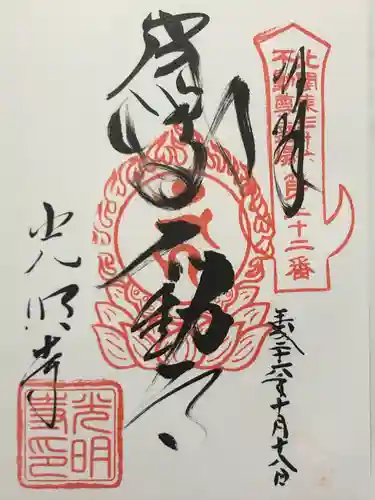 奉拝
北関東三十六
不動尊霊場第二十二番
不動
平成二十六年十月十八日
光明寺
光明
寺印